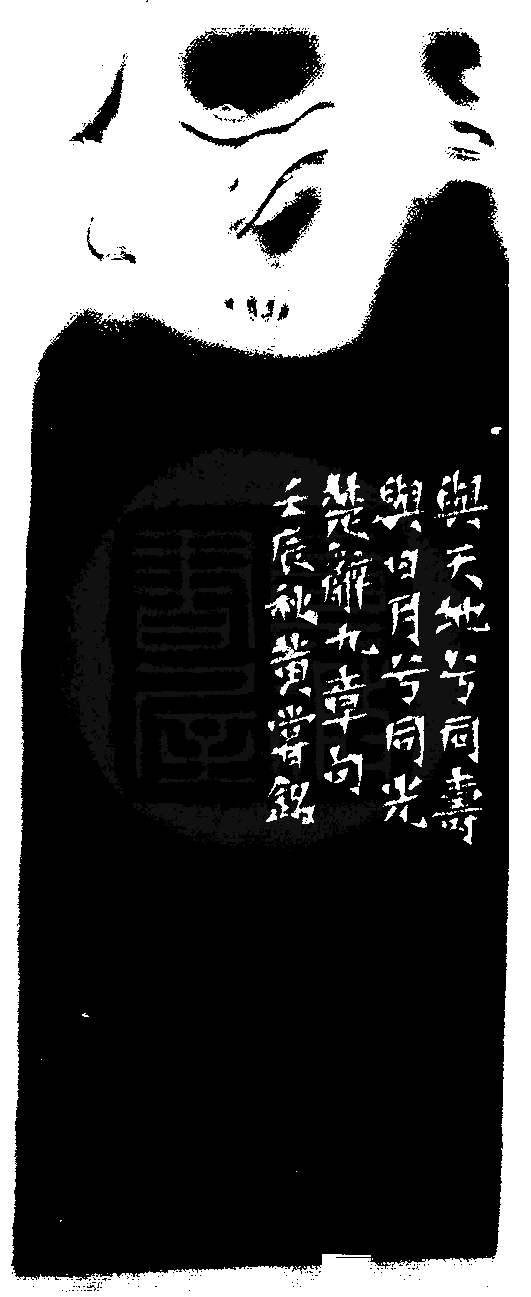 與天地兮同壽
與日月兮同光
楚辭九章句
壬辰秋黃嘗銘